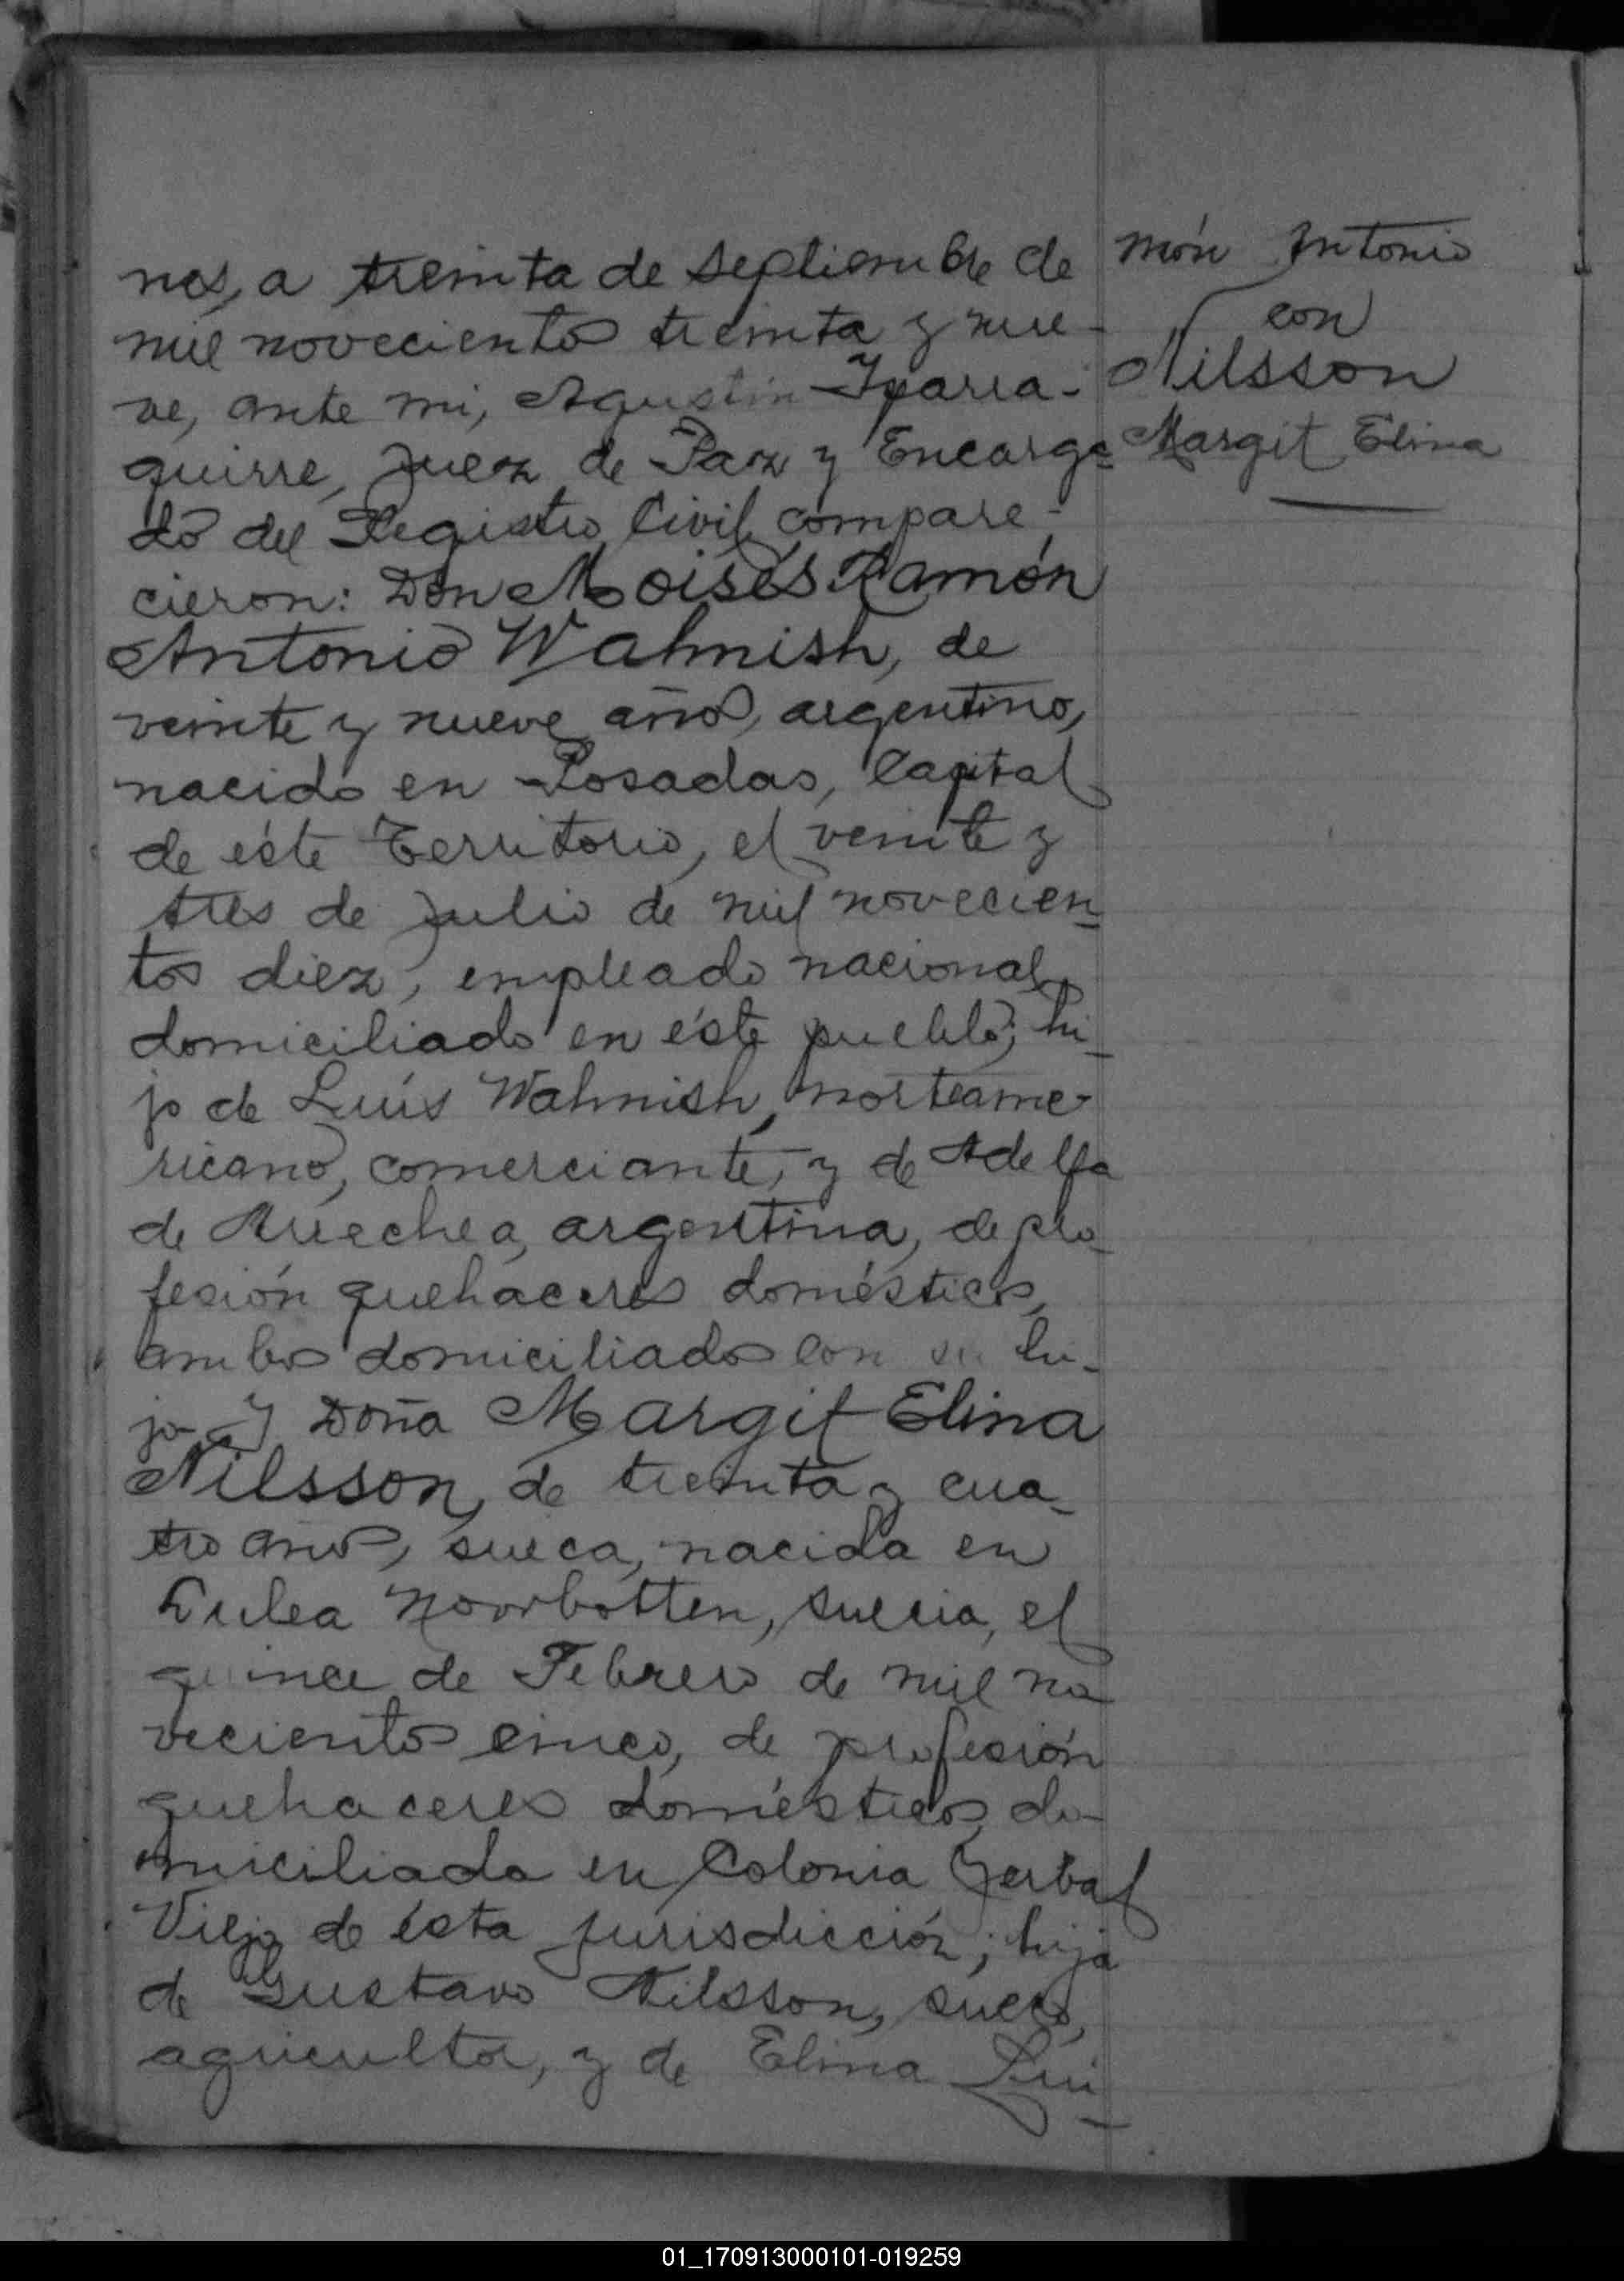 nes, a treinta de septiembre de
mil novecientos treinta y nue-
ve, ante mi, Agustín Yparra-
guirre, Juez de Paz y Encarga-
do del Registro Civil, compare-
cieron: Don Moisés Ramón
Antonio Wahnish, de
veinte y nueve años, argentino,
nacido en Posadas, Capital
de éste Territorio, el veinte y
tres de Julio de mil novecien-
tos diez, empleado nacional,
domiciliado en éste pueblo; hi-
jo de Luís Wahnish, norteame-
ricano, comerciante, y de Adelfa
de Arrechea, argentina, de pro-
fesión quehaceres domésticos,
ambos domiciliados con su hi-
jo. Y Doña Margit Elina
Nilsson, de treinta y cua-
tro años, sueca, nacida en
Lulea Noorbotten, Suecia, el
quince de Febrero de mil no
vecientos cinco, de profesión
quehaceres domésticos, do-
miciliada en Colonia Yerbal
Viejo de ésta jurisdicción; hija
de Gustavo Nilsson, sueco,
agricultor, y de Elina Lui-
món Antonio
con
Nilsson
Margit Elina
01_170913000101-019259